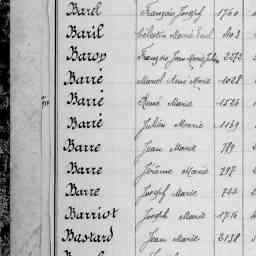 Barel François Joseph 1760
Baril Célestin Marie Paul 403
Baron François Jean Marie Julien 2272
Barré Marcel René Marie 1028
Barré René Marie 1524
Barré Julien Marie 1149
Barre Jean Marie 789
Barre Jérôme Marie 297
Barre Joseph Marie 744
Barriot Joseph Marie 1716
Bastard Jean Marie 2138